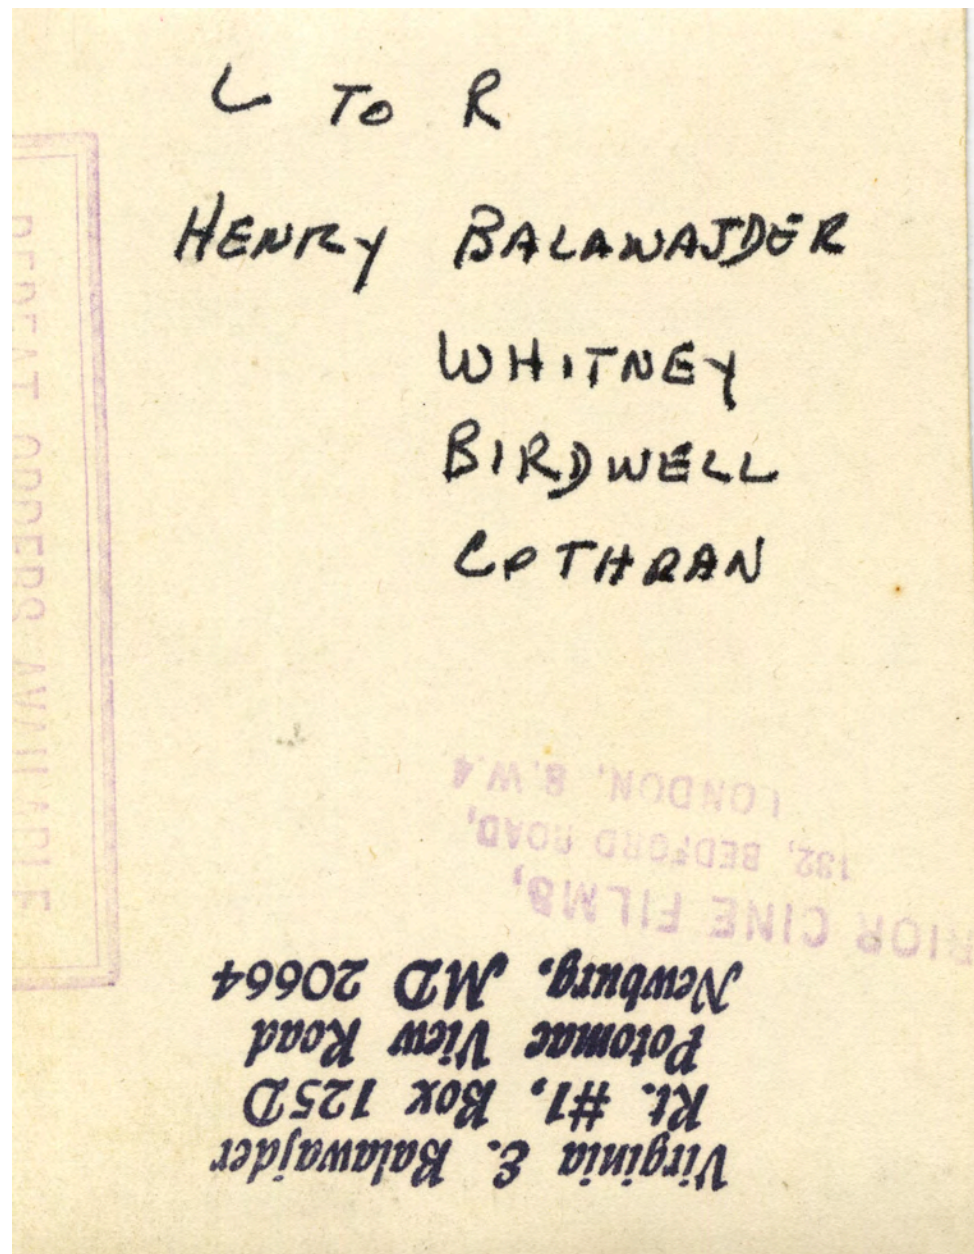 L TO R
HENRY BALAWAJDER
WHITNEY
BIRDWELL
COTHRAN
REPEAT ORDERS AVAILABLE
RIOR CINE FILMS,
132, BEDFORD ROAD,
LONDON, S.W.4
Virginia E. Balawajder
Rt. #1, Box 125D
Potomac View Road
Newburg, MD 20664